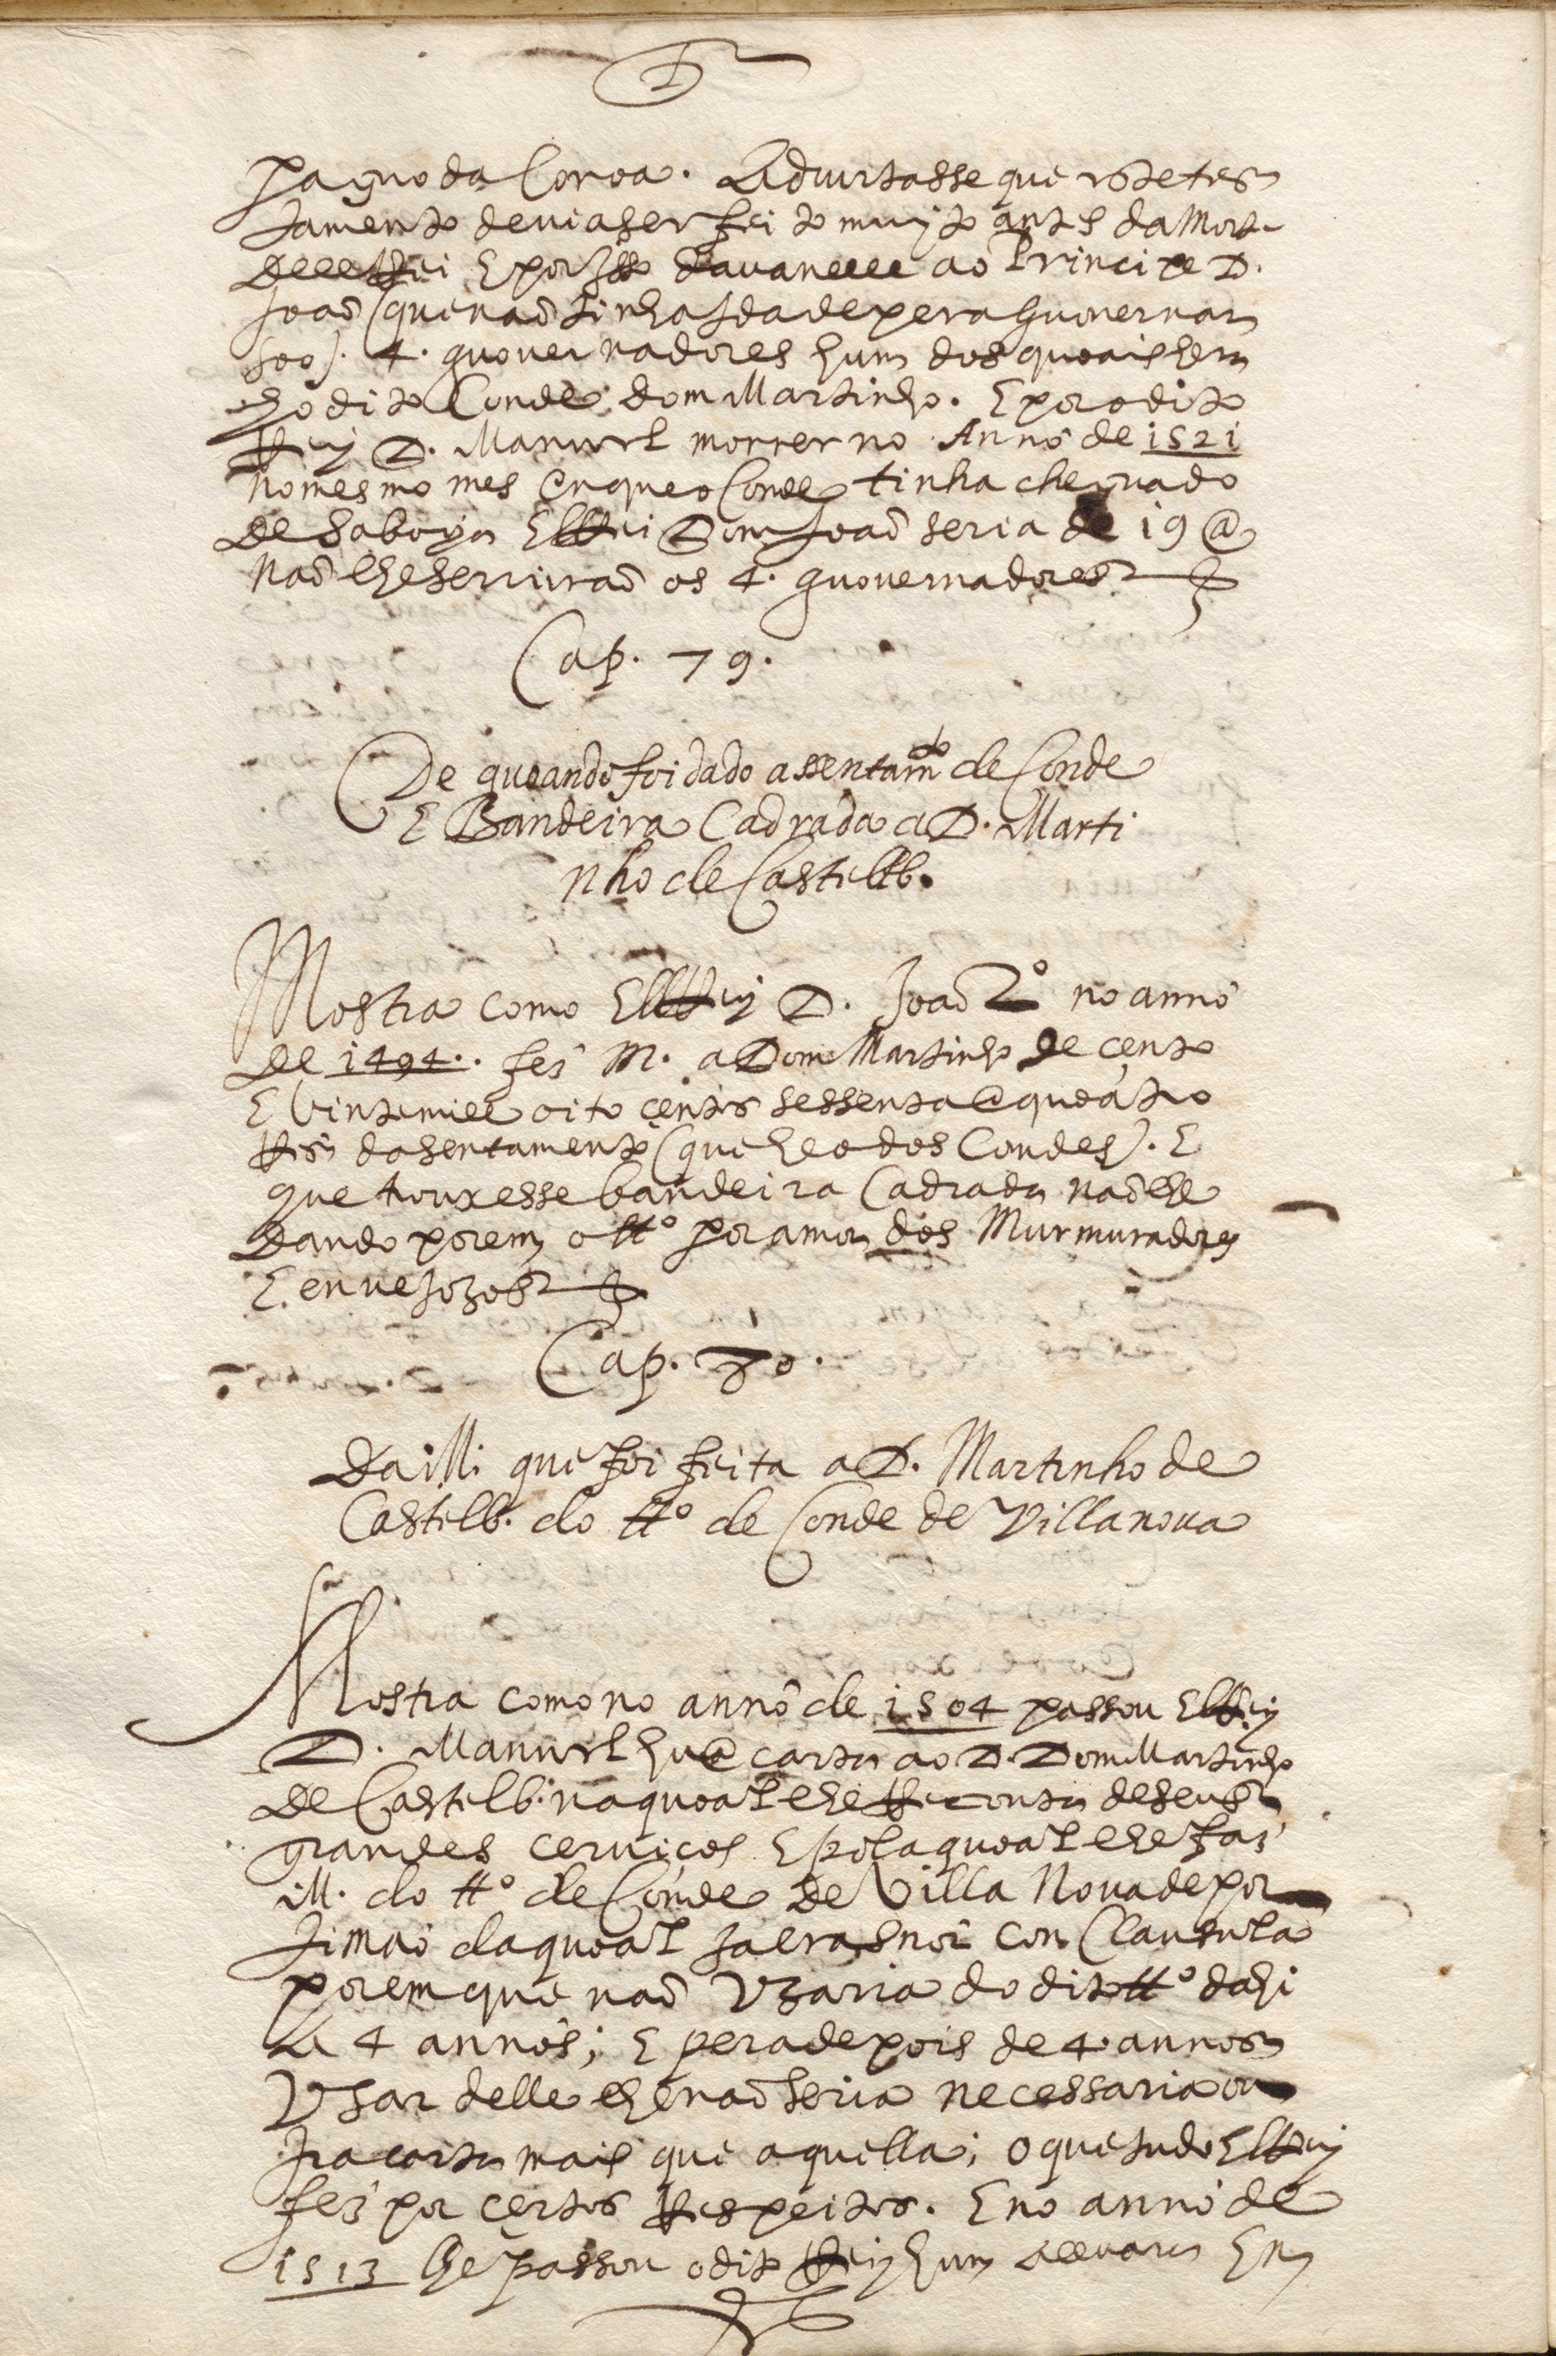 pagno da Coroa. Advirtasse que este tes
tamento devia ser feito muyto antes da Morte
delle Rei E por Isso dava nelle ao Principe D.
Joaõ (que naõ tinha Idade pera guovernar
soo). 4. guovernadores hum dos quoais hera
ho dito Conde dom Martinho. E por o dito
Rey D. Manuel morrer no Anno de 1521
No mesmo mes En que o Conde tinha cheguado
de Saboya El Rei Dom Joaõ seria de 19 @
Naõ lhe serviraõ os 4. guovernadores
Cap. 79.
De quoando foi dado assentamto de Conde
E Bandeira Cadrada a D. Marti
nho de Castellb.
Mostra como ElRey D. Joaõ 2º no anno
de 1494.. fes M. a Dom Martinho de cento
E Vinte mill oito centos sessenta @ quoátro
Rs do sentamento (que he o dos Condes). E
que trouxesse bandeira Cadrada naõ lhe
dando porem o ttº por amor dos Murmuradores
E. envejozos
Cap. 80.
Da M. que foi feita a D. Martinho de
Castelb. do ttº de Conde de Villanova
Mostra como no anno de 1504 passou ElRey
D. Manuel hu@ carta ao D. Dom Martinho
de Castelb. na quoal lhe Reconta de seus
grandes cerviços E pola quoal lhe fas
M. do ttº de Conde de Villa Nova de por
timaõ da quoal Ja era snor con Clausula
porem que naõ Uzaria do dito ttº dahi
A 4 annos; E pera depois de 4. annos
Uzar delle lhe naõ seria necessaria ou
tra carta mais que aquella; o que tudo ElRey
fes por certos Respeitos. E no anno de
1513 lhe passou o dito Rey hum Alvara En